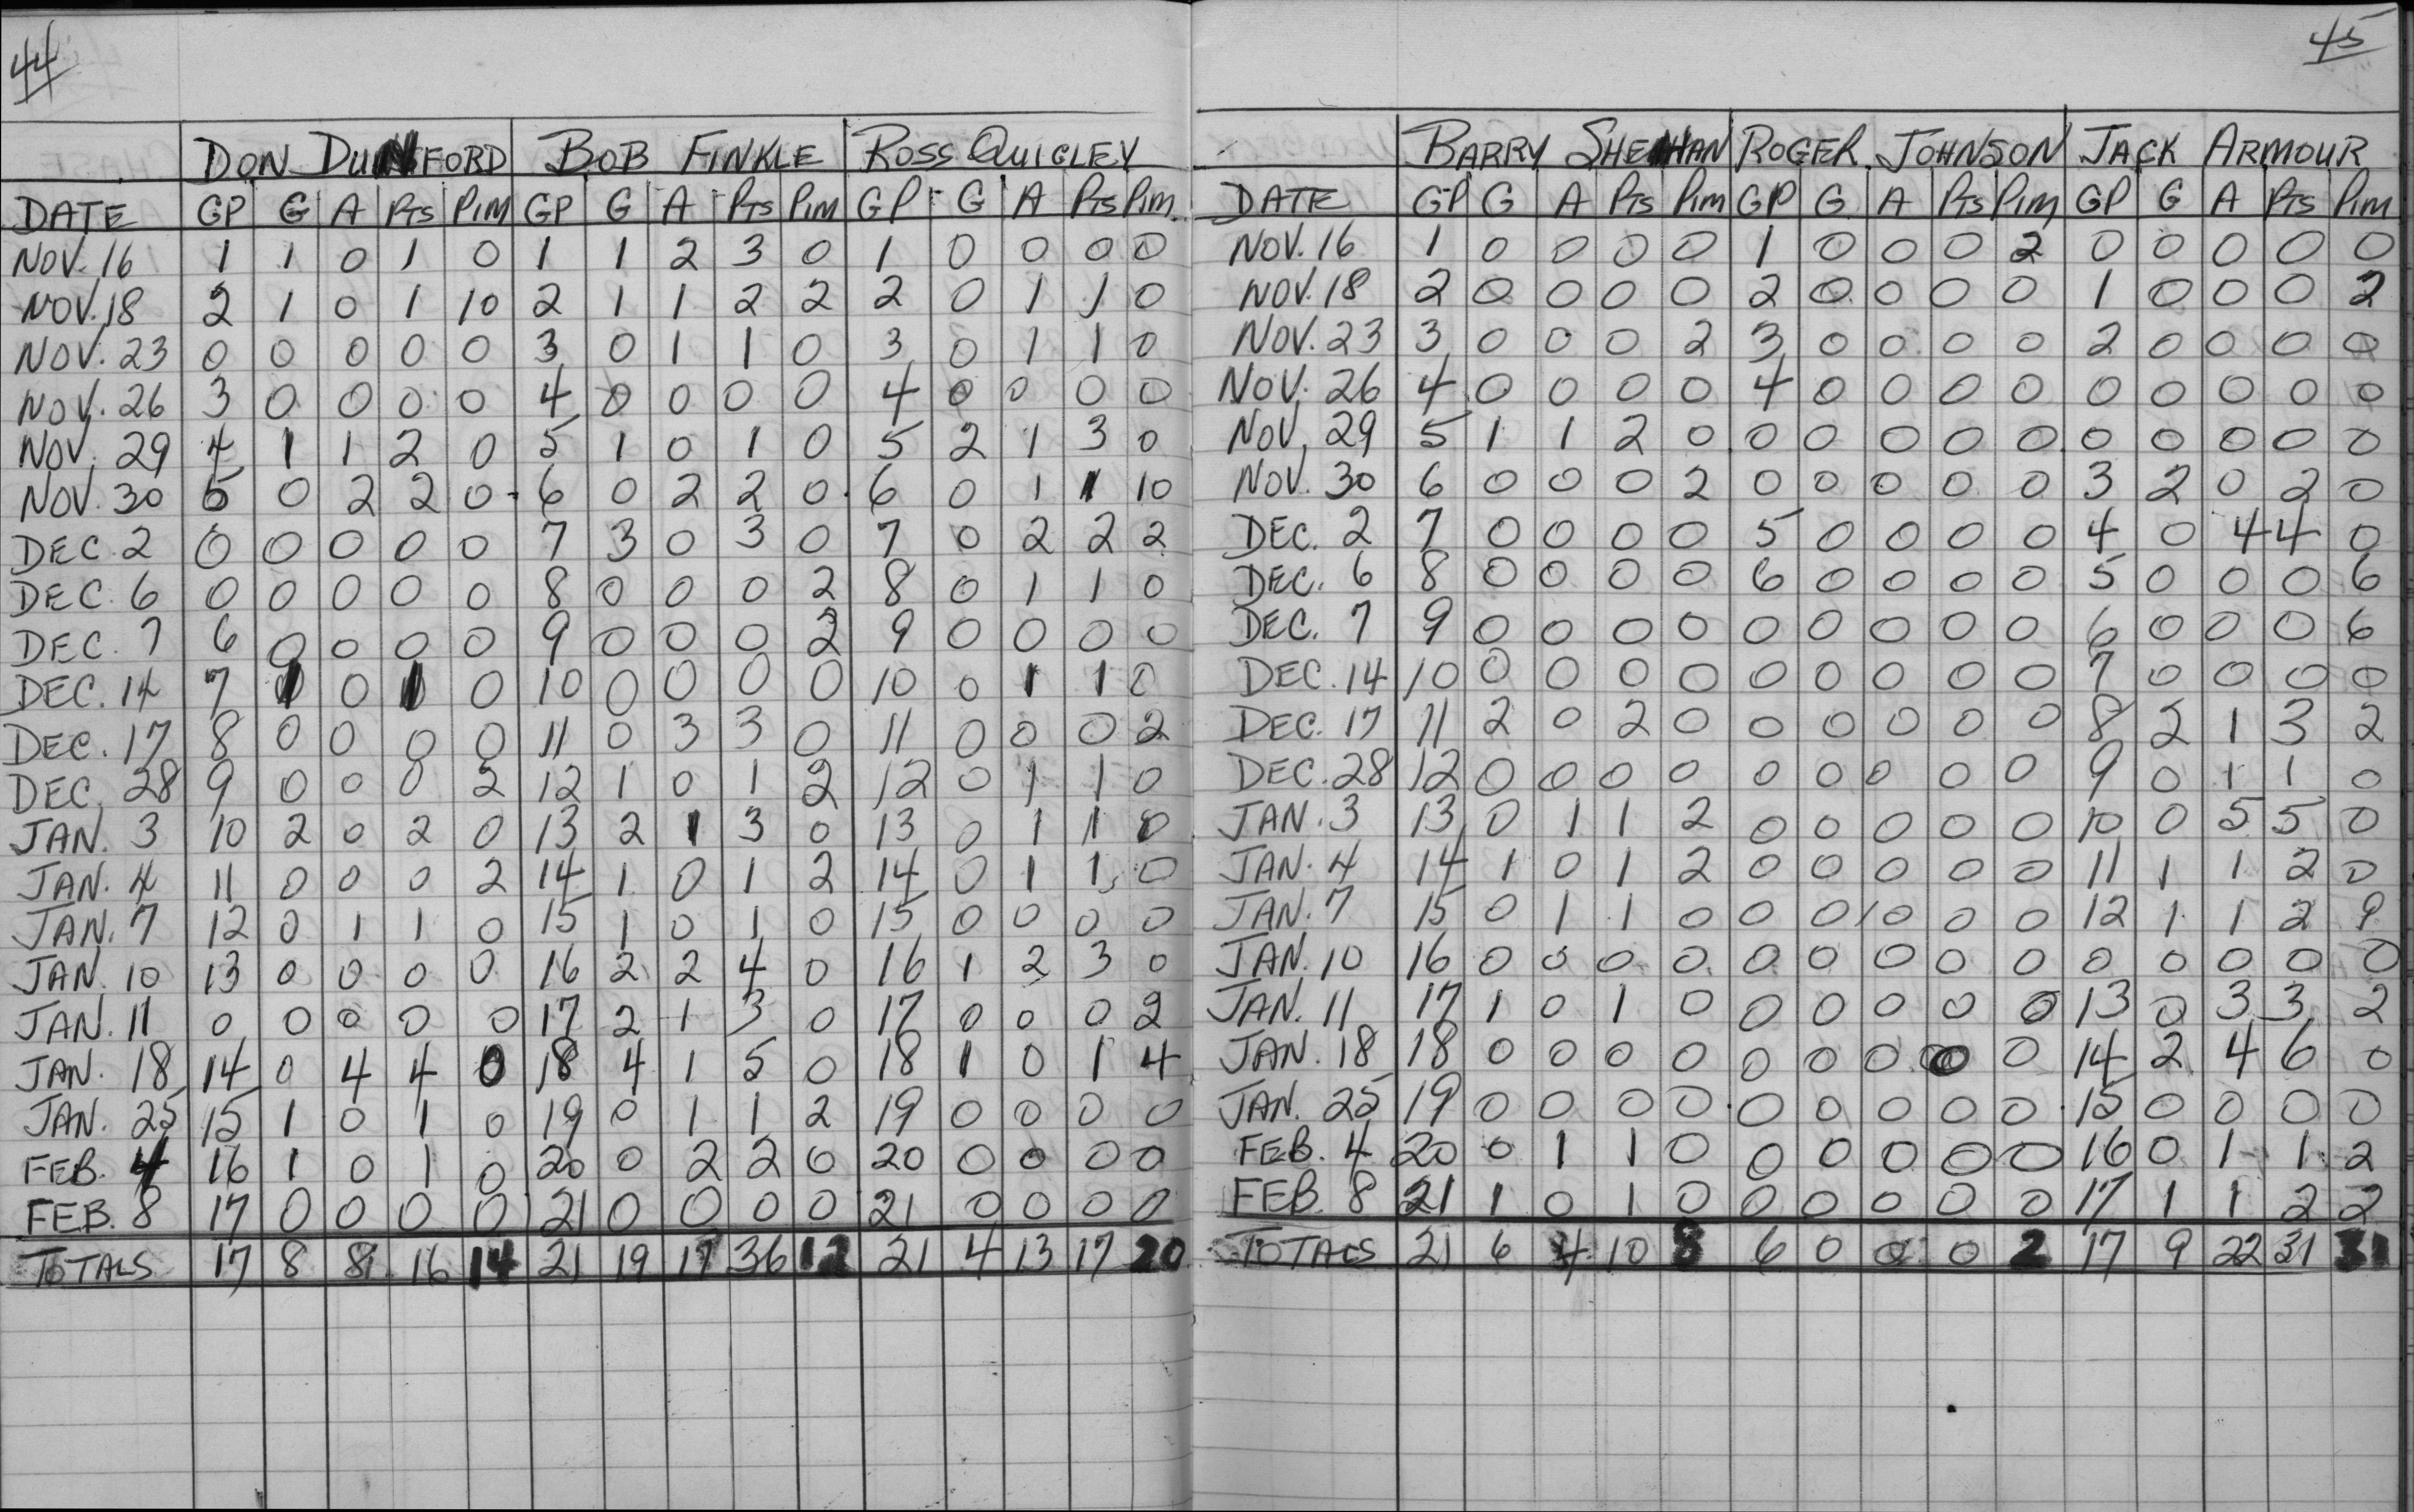 44
DON DUNFORD BOB FINKLE ROSS QUIGLEY
DATE GP G A PTS PIM GP G A PTS PIM GP G A PTS PIM
NOV. 16 1 1 0 1 0 1 1 2 3 0 1 0 0 0 0
NOV. 18 2 1 0 1 10 2 1 1 2 2 2 0 1 1 0
NOV. 23 0 0 0 0 0 3 0 1 1 0 3 0 1 1 0
NOV. 26 3 0 0 0 0 4 0 0 0 0 4 0 0 0 0
NOV. 29 4 1 1 2 0 5 1 0 1 0 5 2 1 3 0
NOV. 30 5 0 2 2 0 6 0 2 2 0 6 0 1 1 10
DEC 2 0 0 0 0 0 7 3 0 3 0 7 0 2 2 2
DEC. 6 0 0 0 0 0 8 0 0 0 2 8 0 1 1 0
DEC. 7 6 0 0 0 0 9 0 0 0 2 9 0 0 0 0
DEC. 14 7 1 0 1 0 10 0 0 0 0 10 0 1 1 0
DEC. 17 8 0 0 0 0 11 0 3 3 0 11 0 0 0 2
DEC. 28 9 0 0 0 2 12 1 0 1 2 12 0 1 1 0
JAN. 3 10 2 0 2 0 13 2 1 3 0 13 0 1 1 0
JAN. 4 11 0 0 0 2 14 1 0 1 2 14 0 1 1 0
JAN. 7 12 0 1 1 0 15 1 0 1 0 15 0 0 0 0
JAN. 10 13 0 0 0 0 16 2 2 4 0 16 1 2 3 0
JAN. 11 0 0 0 0 0 17 2 1 3 0 17 0 0 0 2
JAN. 18 14 0 4 4 0 18 4 1 5 0 18 1 0 1 4
JAN. 25 15 1 0 1 0 19 0 1 1 2 19 0 0 0 0
FEB. 4 16 1 0 1 0 20 0 2 2 0 20 0 0 0 0
FEB. 8 17 0 0 0 0 21 0 0 0 0 21 0 0 0 0
TOTALS 17 8 8 16 14 21 19 17 36 12 21 4 13 17 20
45
BARRY SHENHAN ROGER JOHNSON JACK ARMOUR
DATE GP G A PTS PIM GP G A PTS PIM GP G A PTS PIM
NOV. 16 1 0 0 0 0 1 0 0 0 2 0 0 0 0 0
NOV. 18 2 0 0 0 0 2 0 0 0 0 1 0 0 0 2
NOV. 23 3 0 0 0 2 3 0 0 0 0 2 0 0 0 0
NOV. 26 4 0 0 0 0 4 0 0 0 0 0 0 0 0 0
NOV. 29 5 1 1 2 0 0 0 0 0 0 0 0 0 0 0
NOV. 30 6 0 0 0 2 0 0 0 0 0 3 2 0 2 0
DEC. 2 7 0 0 0 0 5 0 0 0 0 4 0 4 4 0
DEC. 6 8 0 0 0 0 6 0 0 0 0 5 0 0 0 6
DEC. 7 9 0 0 0 0 0 0 0 0 0 6 0 0 0 6
DEC. 14 10 0 0 0 0 0 0 0 0 0 7 0 0 0 0
DEC. 17 11 2 0 2 0 0 0 0 0 0 8 2 1 3 2
DEC. 28 12 0 0 0 0 0 0 0 0 0 9 0 1 1 0
JAN. 3 13 0 1 1 2 0 0 0 0 0 10 0 5 5 0
JAN. 4 14 1 0 1 2 0 0 0 0 0 11 1 1 2 0
JAN. 7 15 0 1 1 0 0 0 0 0 0 12 1 1 2 9
JAN. 10 16 0 0 0 0 0 0 0 0 0 0 0 0 0 0
JAN. 11 17 1 0 1 0 0 0 0 0 0 13 0 3 3 2
JAN. 18 18 0 0 0 0 0 0 0 0 0 14 2 4 6 0
JAN. 25 19 0 0 0 0 0 0 0 0 0 15 0 0 0 0
FEB. 4 20 0 1 1 0 0 0 0 0 0 16 0 1 1 2
FEB. 8 21 1 0 1 0 0 0 0 0 0 17 1 1 2 2
TOTALS 21 6 4 10 8 6 0 0 0 2 17 9 22 31 31